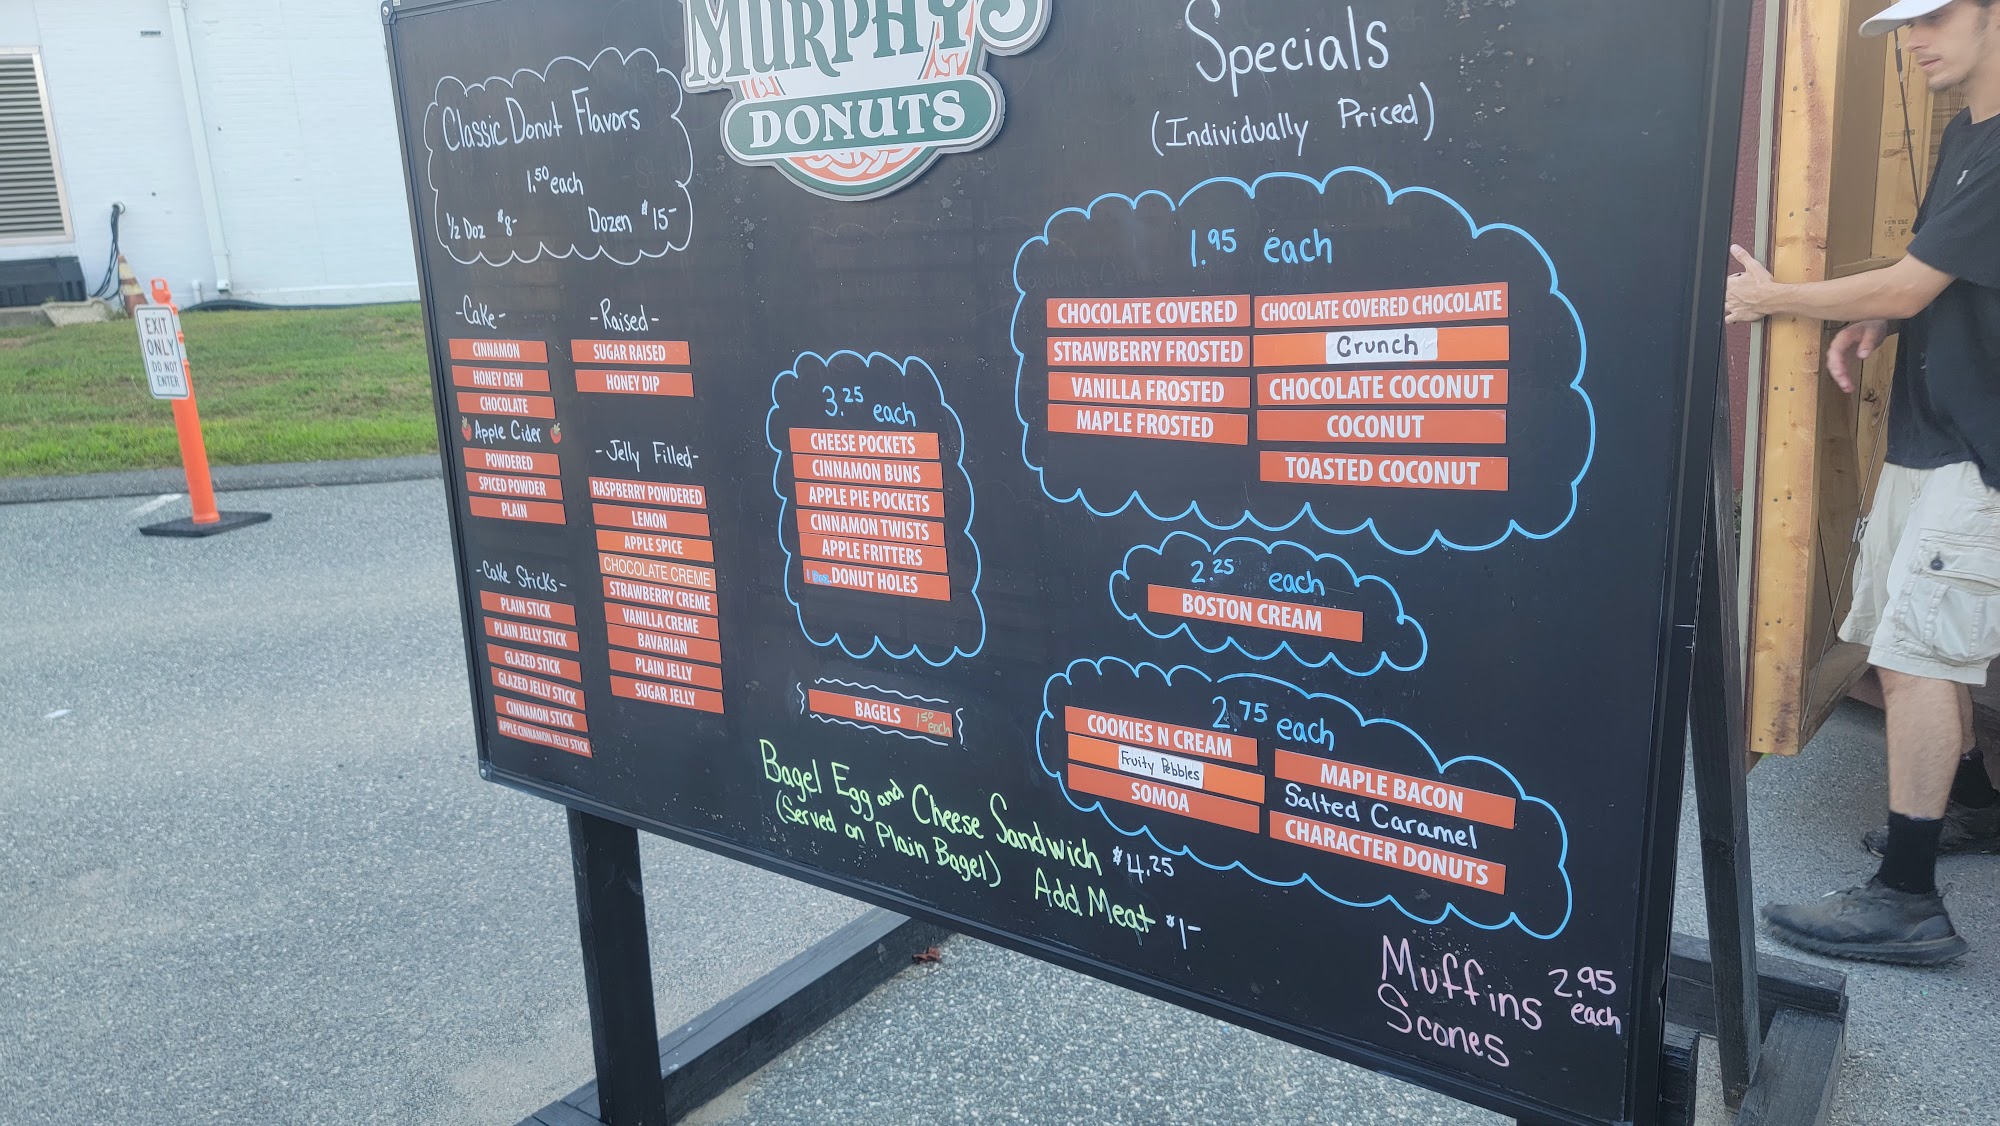 MURPHY'S
DONUTS
Classic Donut Flavors
1.50 each
1/2 Doz $8-
Dozen $15-
-Cake-
CINNAMON
HONEY DEW
CHOCOLATE
Apple Cider
POWDERED
SPICED POWDER
PLAIN
-Cake Sticks-
PLAIN STICK
PLAIN JELLY STICK
GLAZED STICK
GLAZED JELLY STICK
CINNAMON STICK
APPLE CINNAMON JELLY STICK
-Raised-
SUGAR RAISED
HONEY DIP
-Jelly Filled-
RASPBERRY POWDERED
LEMON
APPLE SPICE
CHOCOLATE CREME
STRAWBERRY CREME
VANILLA CREME
BAVARIAN
PLAIN JELLY
SUGAR JELLY
3.25 each
CHEESE POCKETS
CINNAMON BUNS
APPLE PIE POCKETS
CINNAMON TWISTS
APPLE FRITTERS
DONUT HOLES
BAGELS 1.50 each
Bagel Egg and Cheese Sandwich $4.25
(Served on Plain Bagel) Add Meat $1-
Specials
(Individually Priced)
1.95 each
CHOCOLATE COVERED
STRAWBERRY FROSTED
VANILLA FROSTED
MAPLE FROSTED
CHOCOLATE COVERED CHOCOLATE
Crunch
CHOCOLATE COCONUT
COCONUT
TOASTED COCONUT
2.25 each
BOSTON CREAM
2.75 each
COOKIES N CREAM
Fruity Pebbles
SOMOA
MAPLE BACON
Salted Caramel
CHARACTER DONUTS
Muffins 2.95 each
Scones
EXIT
ONLY
DO NOT
ENTER